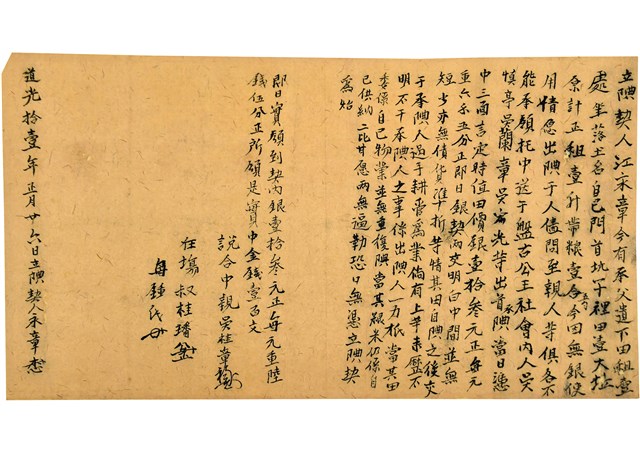 立䐟契人江永章今有承父遺下田租壹
處坐落土名自己門首坑下裡田壹大坵
原計正租壹斗帶糧壹合今因無銀使
用情愿出䐟于人儘問至親人等俱各不
能承領托中送于盤古公王社會內人吳
慎亭吳蘭章吳 光等出首承䐟當日憑
中三面言定時值田價銀壹拾叁元正每元
重六錢五分正即日銀契兩交明白中間並無
短少亦無債貨准折等情其田自䐟之後交
于承䐟人過手耕管為業倘有上手來歷不
明不干承䐟人之事係出䐟人一力抵當其田
委係自己物業並無重復典當其粮米仍係自
己供納二比甘愿兩無逼勒恐口無憑立䐟契
為始
即日實領到契內銀壹拾叁元正每元重陸
錢伍分正所領是實中金錢壹百文
說合中親吳桂章
在塲叔桂璠
母鍾氏
道光拾壹年正月廿六日立䐟契人永章